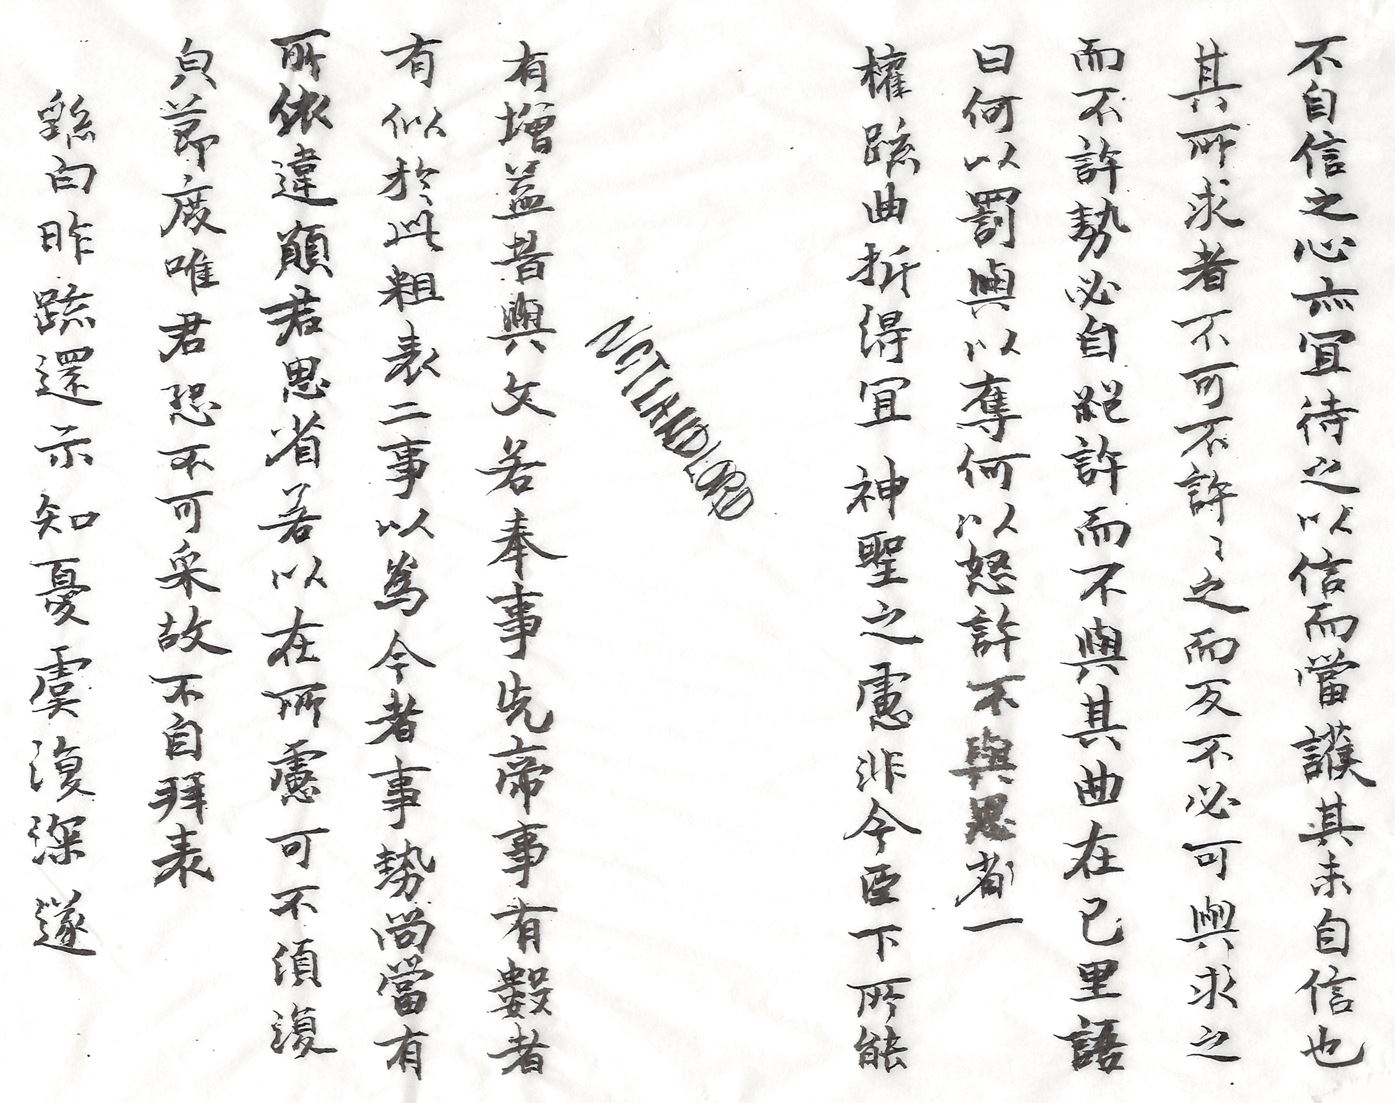 不自信之心亦宜待之以信而當護其未自信也
其所求者不可不許許之而反不必可與求之
而不許勢必自絕許而不與其曲在己里語
曰何以罰與以奪何以怒許不與思省一
權疏曲折得宜神聖之慮非今臣下所能
NOTLANDLORD
有增益昔與文若奉事先帝事有數者
有似於此粗表二事以為今者事勢尚當有
所依違願君思省若以在所慮可不須復
白節度唯君恐不可采故不自拜表
繇白昨疏還示知憂虞復深遂